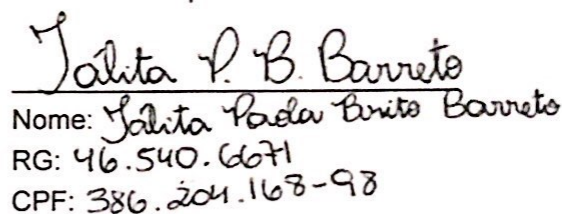 Tálita P. B. Barreto
Nome: Tálita Paola Brito Barreto
RG: 46.540.6671
CPF: 386.204.168-98